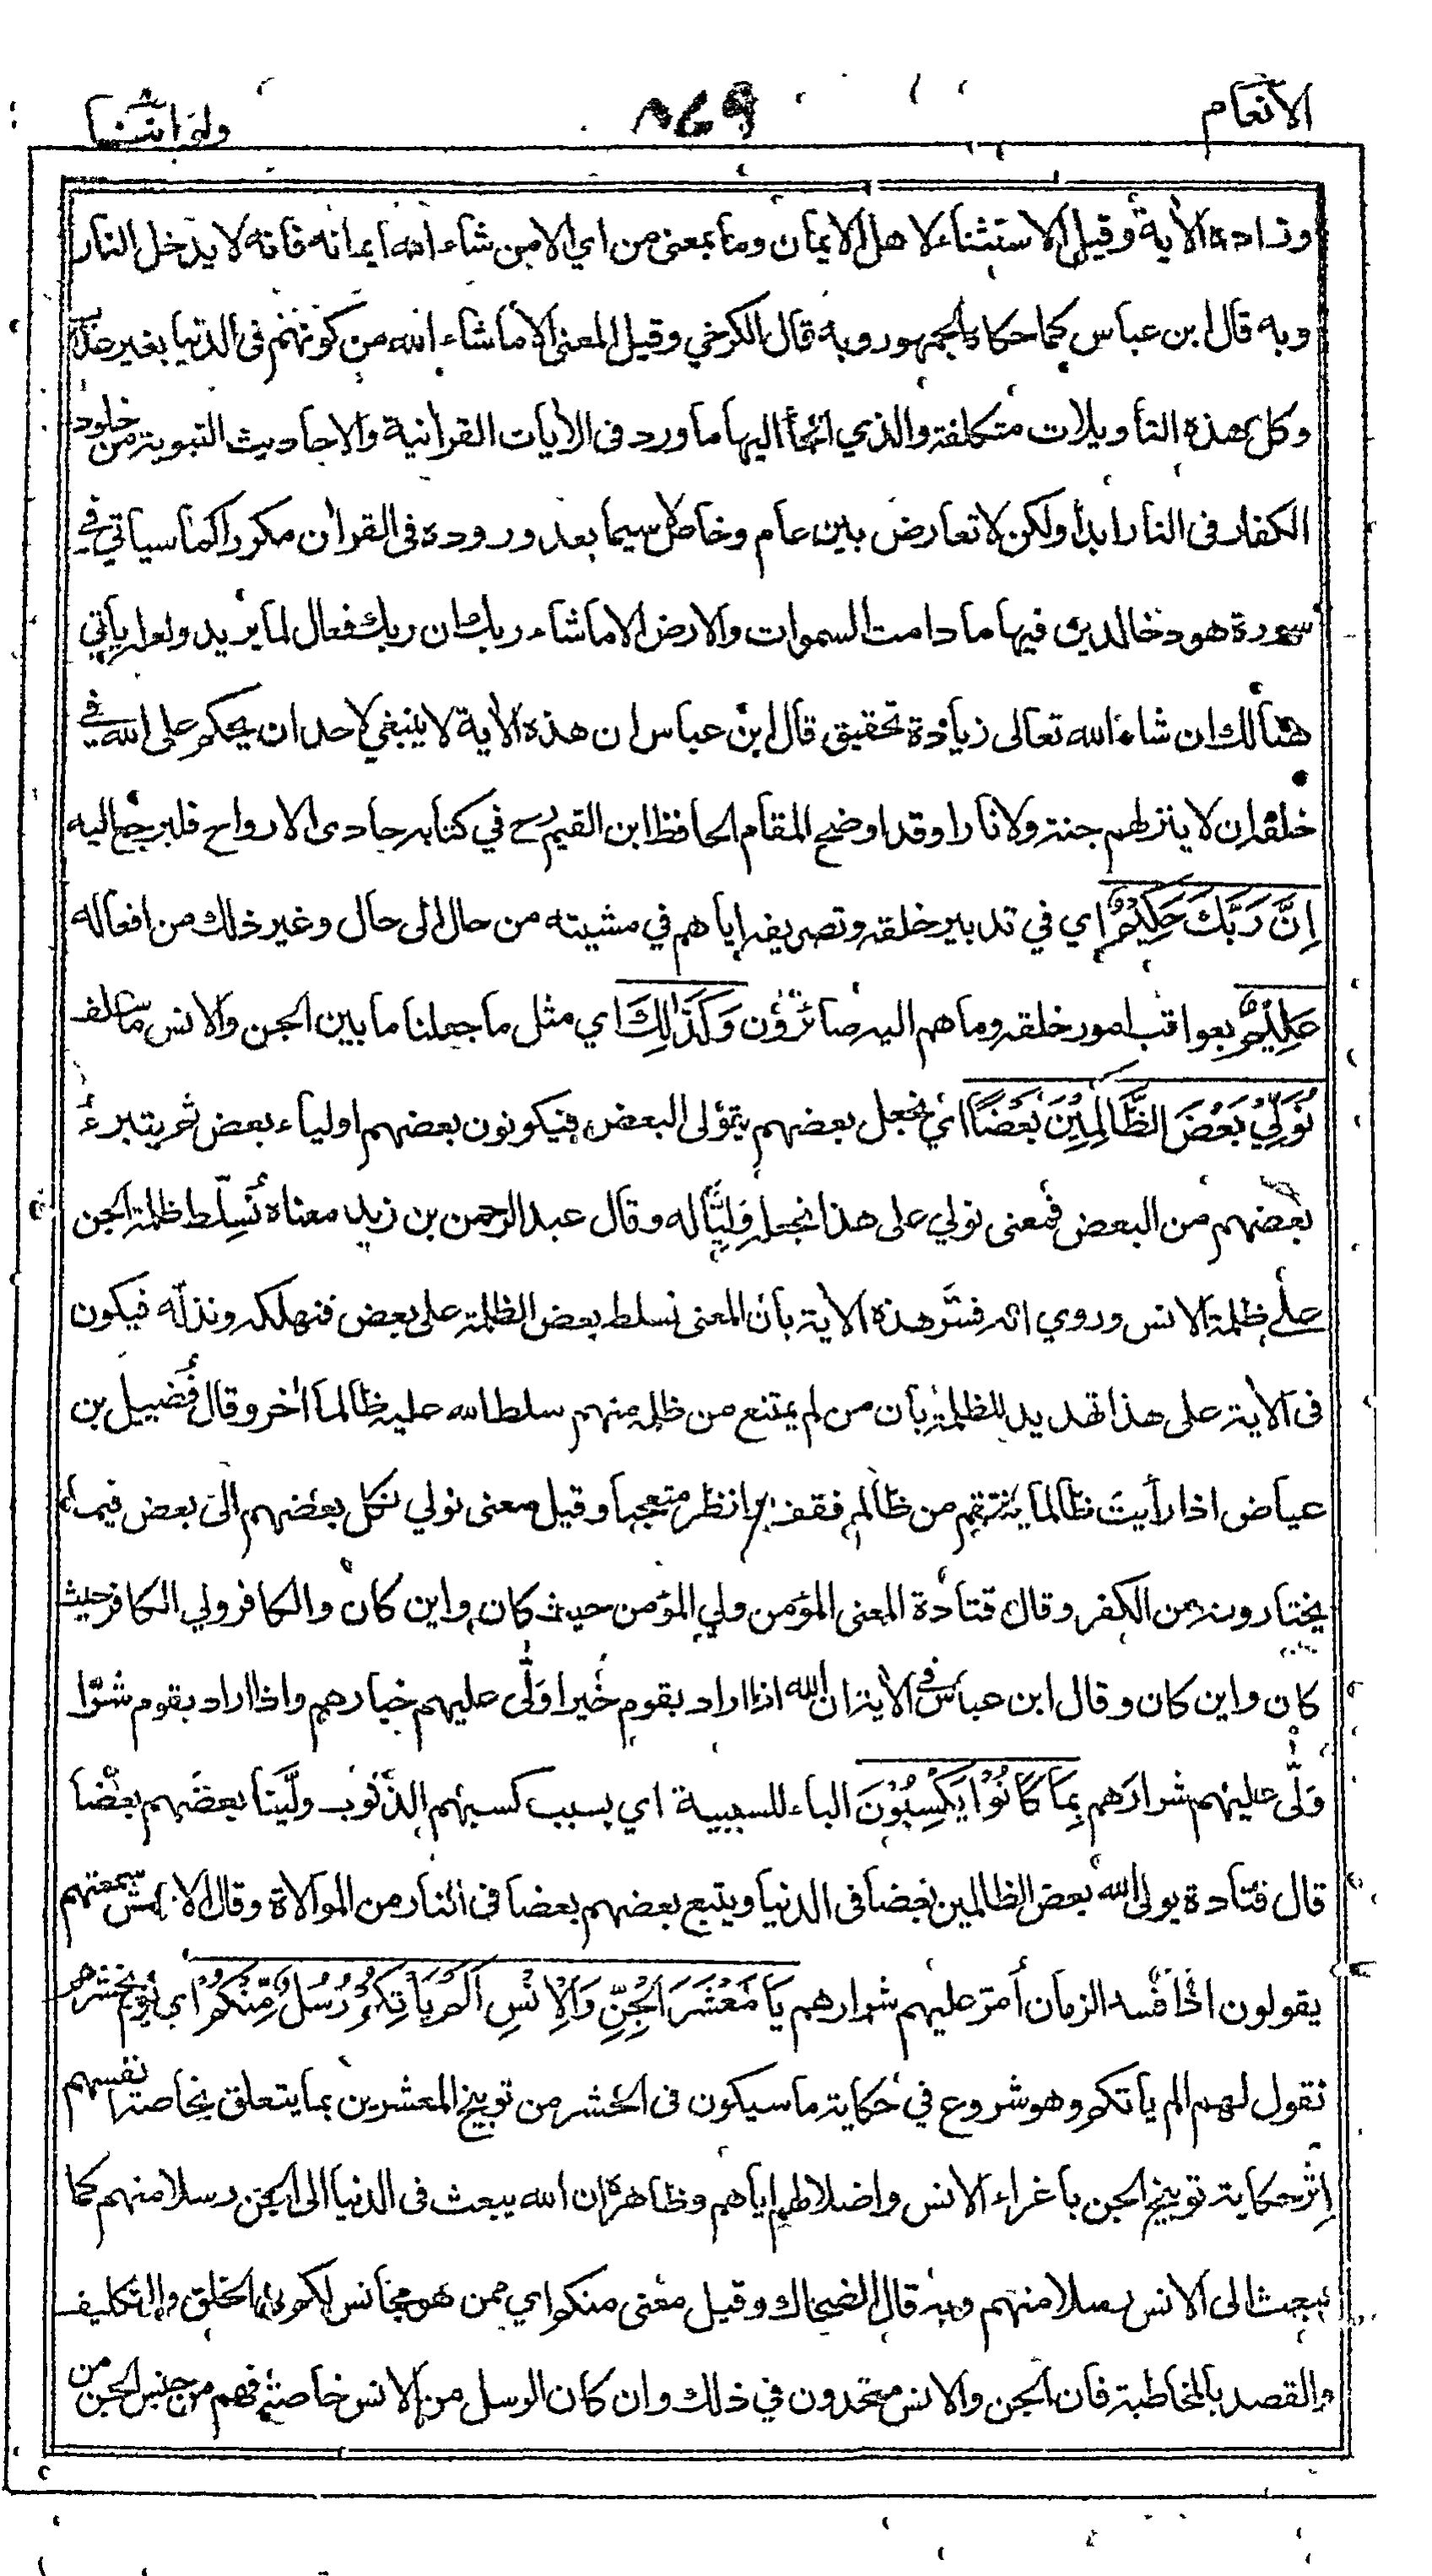 الانعام
ولو اننا
وزاده الأية وقيل الاستثناء لاهل الايمان وما بمعنى من اي الا من شاء الله ايمانه فانه لا يدخل النار
وبه قال ابن عباس كما حكاه الجمهور وبه قال الكرخي وقيل المعنى الا ما شاء الله من كونهم فى الدنيا بغير عذاب
وكل هذه التأويلات متكلفة والذي الجأ اليها ما ورد فى الأيات القرأنية والاحاديث النبوية من خلود
الكفار فى النار ابدا ولكن لا تعارض بين عام وخاص لا سيما بعد وروده فى القرأن مكررا كما سياتي في
سورة هود خالدين فيها ما دامت السموات والارض الا ما شاء ربك ان ربك فعال لما يريد ولعله يأتي
هنالك ان شاء الله تعالى زيادة تحقيق قال ابن عباس ان هذه الأية لا ينبغي لاحد ان يحكم على الله في
خلقه ان لا ينزلهم جنة ولا نارا وقد اوضح المقام الحافظ ابن القيم رح في كتابه حادى الارواح فليرجع اليه
اِنَّ رَبَّكَ حَكِيْمٌ اي في تدبير خلقه وتصريفه اياهم في مشيته من حال الى حال وغير ذلك من افعاله
عَلِيْمٌ بعواقب امور خلقه وما هم اليه صائرون وَكَذٰلِكَ اي مثل ما جعلنا ما بين الجن والانس ما سلف
نُوَلِّيْ بَعْضَ الظَّالِمِيْنَ بَعْضًا اي نجعل بعضهم يتولى البعض فيكونون بعضهم اولياء بعض ثم يتبرء
بعضهم من البعض فمعنى نولي على هذا نجعله وَلِيًّا له وقال عبد الرحمن بن زيد معناه نُسلّط ظلمة الجن
على ظلمة الانس وروي انه فسَّر هذه الأية بأن المعنى نسلط بعض الظلمة على بعض فنهلكه ونذلّه فيكون
فى الأية على هذا تهديد للظلمة بأن من لم يمتنع من ظلمه منهم سلط الله عليه ظالما أخر وقال فُضيل بن
عياض اذا رأيتَ ظالما ينتقم من ظالم فقف وانظر متعجبا وقيل معنى نولي نكل بعضهم الى بعض فيما
يختارونه من الكفر وقال قتادة المعنى المؤمن ولي المؤمن حيث كان واين كان والكافر ولي الكافر حيث
كان واين كان وقال ابن عباس في الأية ان الله اذا اراد بقوم خيرا وَلّى عليهم خيارهم واذا اراد بقوم شرّا
وَلّى عليهم شرارَهم بِمَا كَانُوْا يَكْسِبُوْنَ الباء للسببية اي بسبب كسبهم الذنوب ولَّينا بعضَهم بعضا
قال قتادة يولى الله بعض الظالمين بعضا فى الدنيا ويتبع بعضهم بعضا فى النار من الموالاة وقال الاعمش سمعتهم
يقولون اذا فسد الزمان أُمِّر عليهم شرارهم يَا مَعْشَرَ الْجِنِّ وَالْاِنْسِ اَلَمْ يَاْتِكُمْ رُسُلٌ مِّنْكُمْ اي يوم نحشرهم
نقول لهم الم ياتكم وهو شروع في حكاية ما سيكون فى الحشر من توبيخ المعشرين بما يتعلق بخاصة انفسهم
اِثْر حكاية توبيخ الجن باغراء الانس واضلالهم اياهم وظاهره ان الله يبعث فى الدنيا الى الجن رسلا منهم كما
يبعث الى الانس رسلا منهم وبه قال الضحاك وقيل معنى منكم اي ممن هو مجانس لكم فى الخلق والتكليف
والقصد بالمخاطبة فان الجن والانس متحدون في ذلك وان كان الرسل من الانس خاصة فهم من جنس الجن من